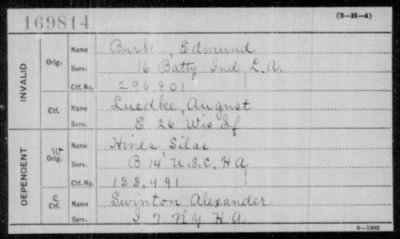 169814
(3-H-4)
INVALID
Orig.
Name Burk, Edmund
Serv. 16 Batty Ind L.A.
Ctf. No. 296801
Ctf.
Name Luedke, August
Serv. E 26 Wis If
DEPENDENT
W
Orig.
Name Hines, Silas
Serv. B 14 U.S.C. H A
Ctf. No. 133,491
C
Ctf.
Name Swinton Alexander
Serv. 7 N Y H A.